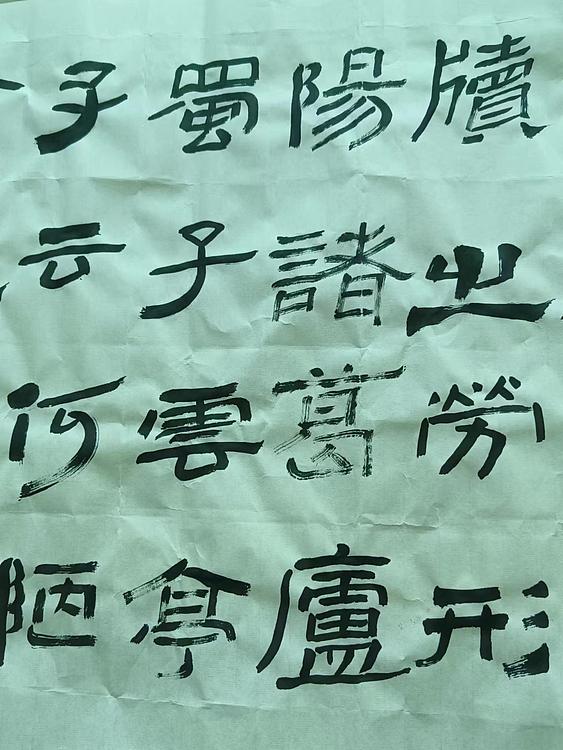 牘之勞形
陽諸葛廬
蜀子雲亭
子云何陋